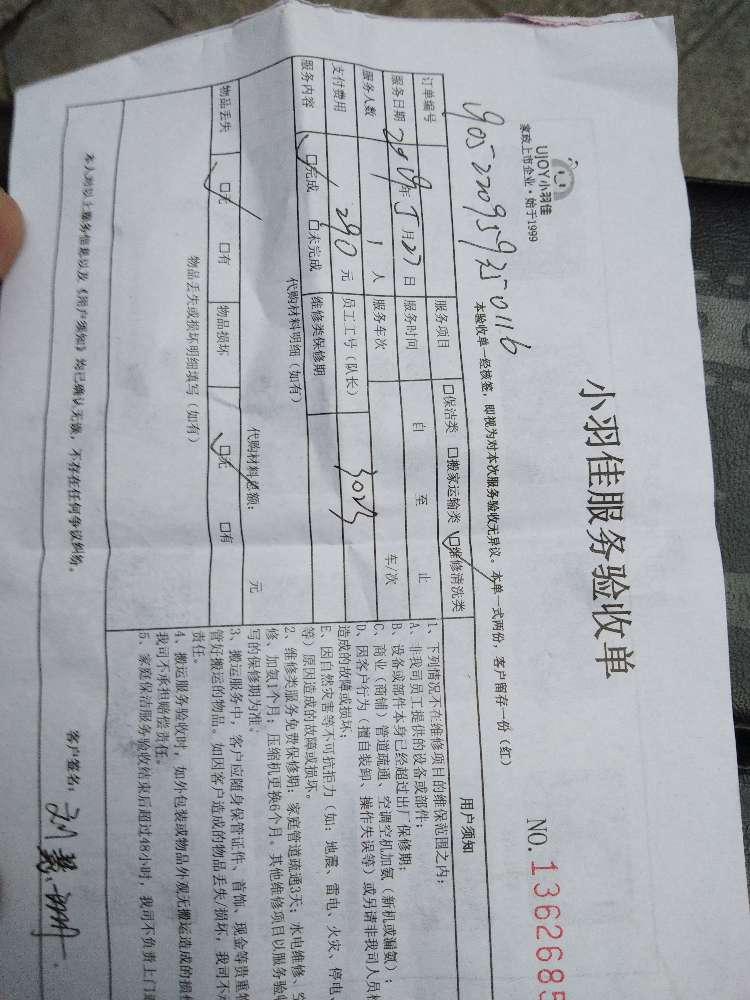 UJOY小羽佳
家政上市企业·始于1999
小羽佳服务验收单
NO.1362685
本验收单一经核签，即视为对本次服务验收无异议。本单一式两份，客户留存一份（红）
订单编号
服务项目 口保洁类 口搬家运输类 口维修清洗类
服务日期 2019年5月27日 服务时间 自 至 止
服务人数 1人 服务车次 车/次
支付费用 290元 员工工号（队长） 3023
服务内容 口完成 口未完成 维修类保修期
代购材料明细（如有）
代购材料总额： 元
物品丢失 口无 口有 物品损坏 口无 口有
物品丢失或损坏明细填写（如有）
用户须知
1、下列情况不在维修项目的维保范围之内：
A、非我司员工提供的设备或部件；
B、设备或部件本身已经超过出厂保修期；
C、商业（商铺）管道疏通、空调空机加氨（新机或漏氨）；
D、因客户行为（擅自装卸、操作失误等）或另请非我司人员
造成的故障或损坏；
E、因自然灾害等不可抗拒力（如：地震、雷电、火灾、停电、
等）原因造成的故障或损坏。
2、维修类服务免费保修期：家庭管道疏通3天；水电维修、
修、加氨1个月；压缩机更换6个月。其他维修项目以服务验
写的保修期为准。
3、搬运服务中，客户应随身保管证件、首饰、现金等贵重
管好搬运的物品。如因客户造成的物品丢失/损坏，我司不
责任。
4、搬运服务验收时，如外包装或物品外观无搬运造成的损
我司不承担赔偿责任。
5、家庭保洁服务验收结束后超过48小时，我司不负责上门
本人对以上服务信息以及《用户须知》均已确认无误，不存在任何争议纠纷。
客户签名：